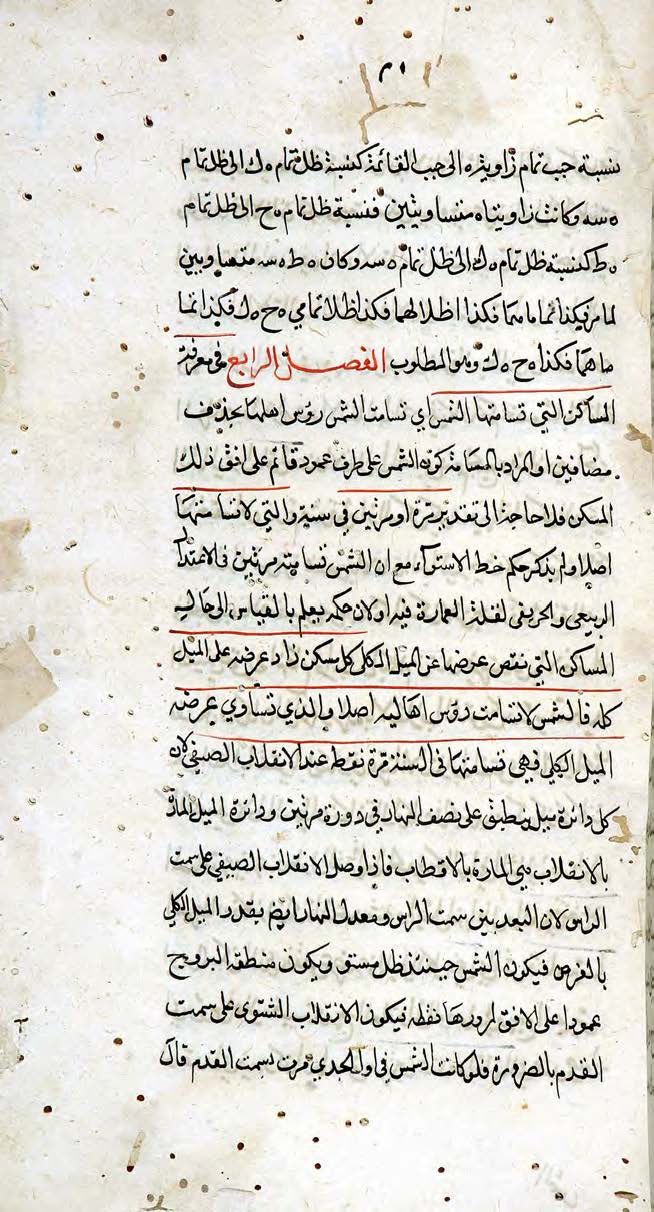 نسبة جيب تمام زاوية ه الى جيب القائمة كنسبة ظل تمام ه ك الى ظل تمام
ه سه وكانت زاويتاه متساويتين فنسبة ظل تمام ه ح الى ظل تمام
ه ط كنسبة ظل تمام ه ك الى ظل تمام ه سه وكان ه ط ه سه متساويين
لما مر فيكذا تماما منهما فكذا اظلالهما فكذا ظلا تمامي ه ح ه ك فكذا تما
ما هما فكذا ه ح ه ك وهو المطلوب الفصل الرابع في معرفة
المساكن التي تسامتها الشمس اي تسامت الشمس رؤس اهلها بحذف
مضافين او المراد بالمسامتة كون الشمس على طرف عمود قائم على افق ذلك
المسكن فلا حاجة الى تقدير مرة او مرتين في سنة والتي لا تسامتها
اصلا ولم يذكر حكم خط الاستوآء مع ان الشمس تسامته مرتين في الاعتدا
الربيعي والخريفي لقلة العمارة فيه او لان حكمه يعلم بالقياس الى حاليه
المساكن التي نقص عرضها عن الميل الكلي كل مسكن زاد عرضه على الميل
كله فالشمس لا تسامت رؤس اهاليه اصلا والذي تساوي عرضه
الميل الكلي فهي تسامتها في السنة مرة فقط عند الانقلاب الصيفي لان
كل دائرة ميل ينطبق على نصف النهار في دورة مرتين ودائرة الميل المارة
بالانقلاب هي المارة بالاقطاب فاذا وصل الانقلاب الصيفي على سمت
الراس لان البعد بين سمت الراس ومعدل النهار ايضم بقدر الميل الكلي
بالفرض فيكون الشمس حينئذ ظل مستو ويكون منطقة البروج
عمودا على الافق لمرورها نقطه فيكون الانقلاب الشتوى على سمت
القدم بالضرورة فلو كانت الشمس في اول الجدي مرت بسمت القدم قال